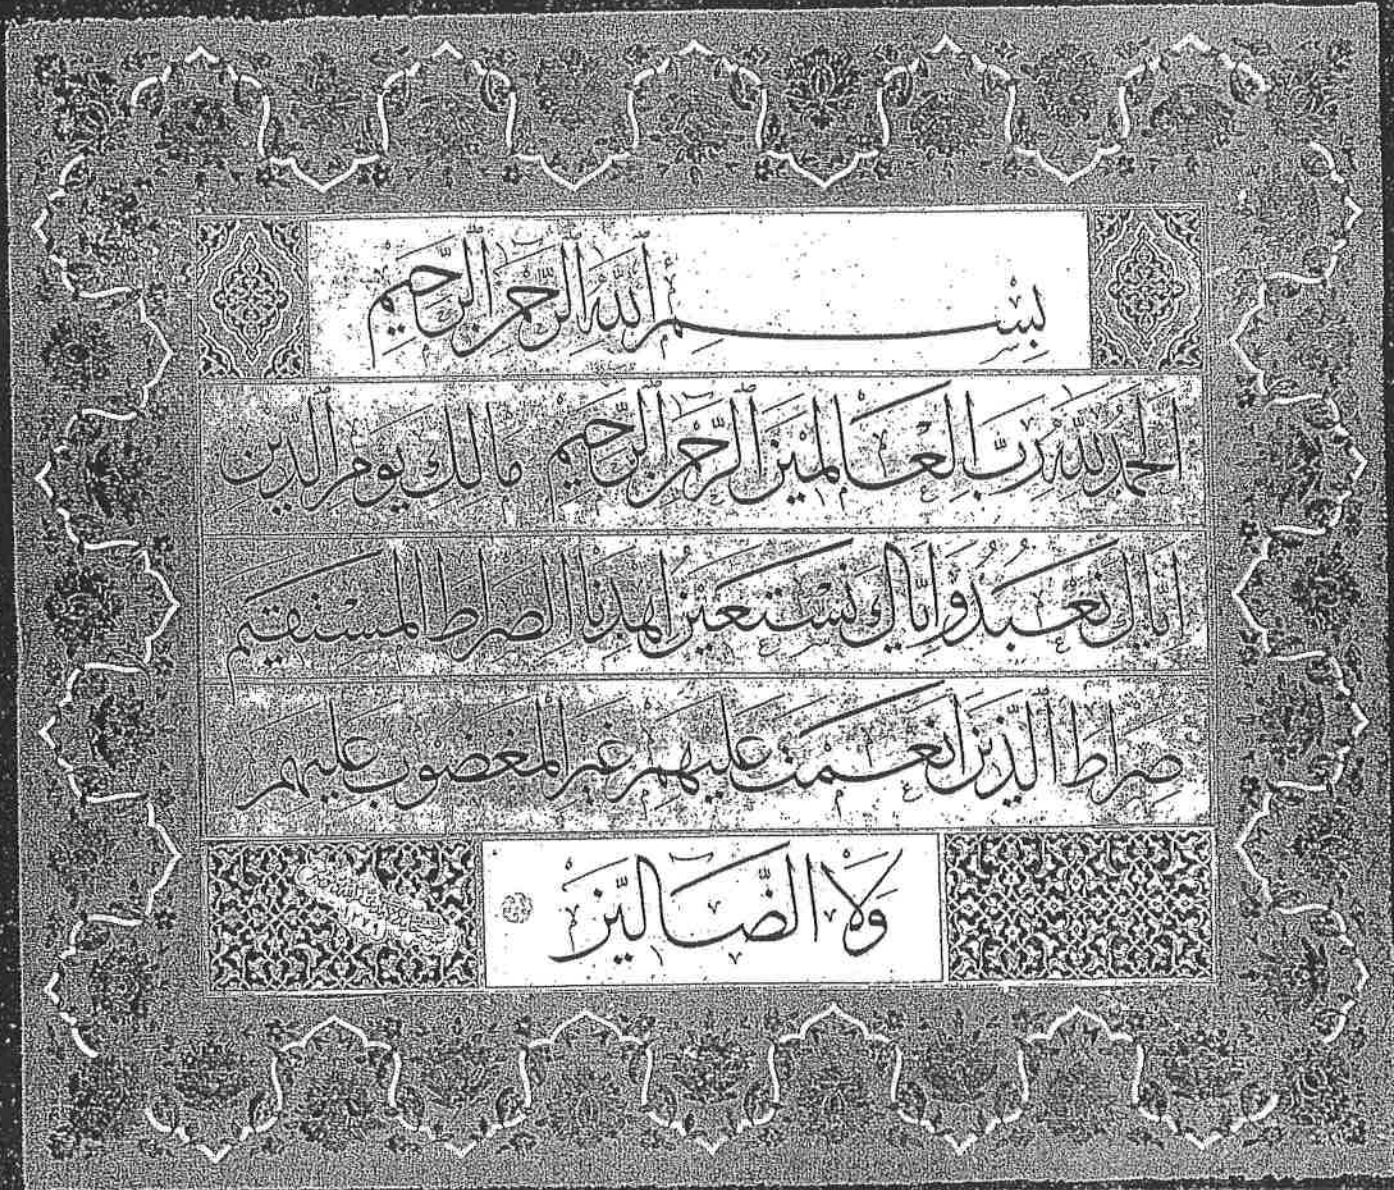 بِسْمِ اللَّهِ الرَّحْمَنِ الرَّحِيمِ
اَلْحَمْدُ لِلَّهِ رَبِّ الْعَالَمِينَ الرَّحْمَنِ الرَّحِيمِ مَالِكِ يَوْمِ الدِّينِ
اِيَّاكَ نَعْبُدُ وَاِيَّاكَ نَسْتَعِينُ اِهْدِنَا الصِّرَاطَ الْمُسْتَقِيمَ
صِرَاطَ الَّذِينَ اَنْعَمْتَ عَلَيْهِمْ غَيْرِ الْمَغْضُوبِ عَلَيْهِمْ
وَلَا الضَّالِّينَ